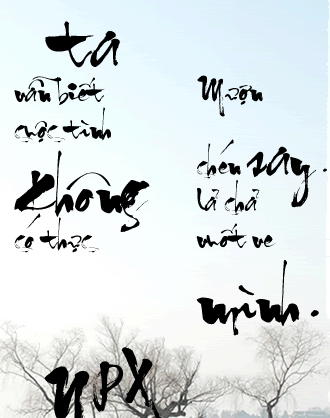 ta
vẫn biết
cuộc tình
không
có thực
Mượn
chén say.
lả chả
vuốt ve
mình.
NPX